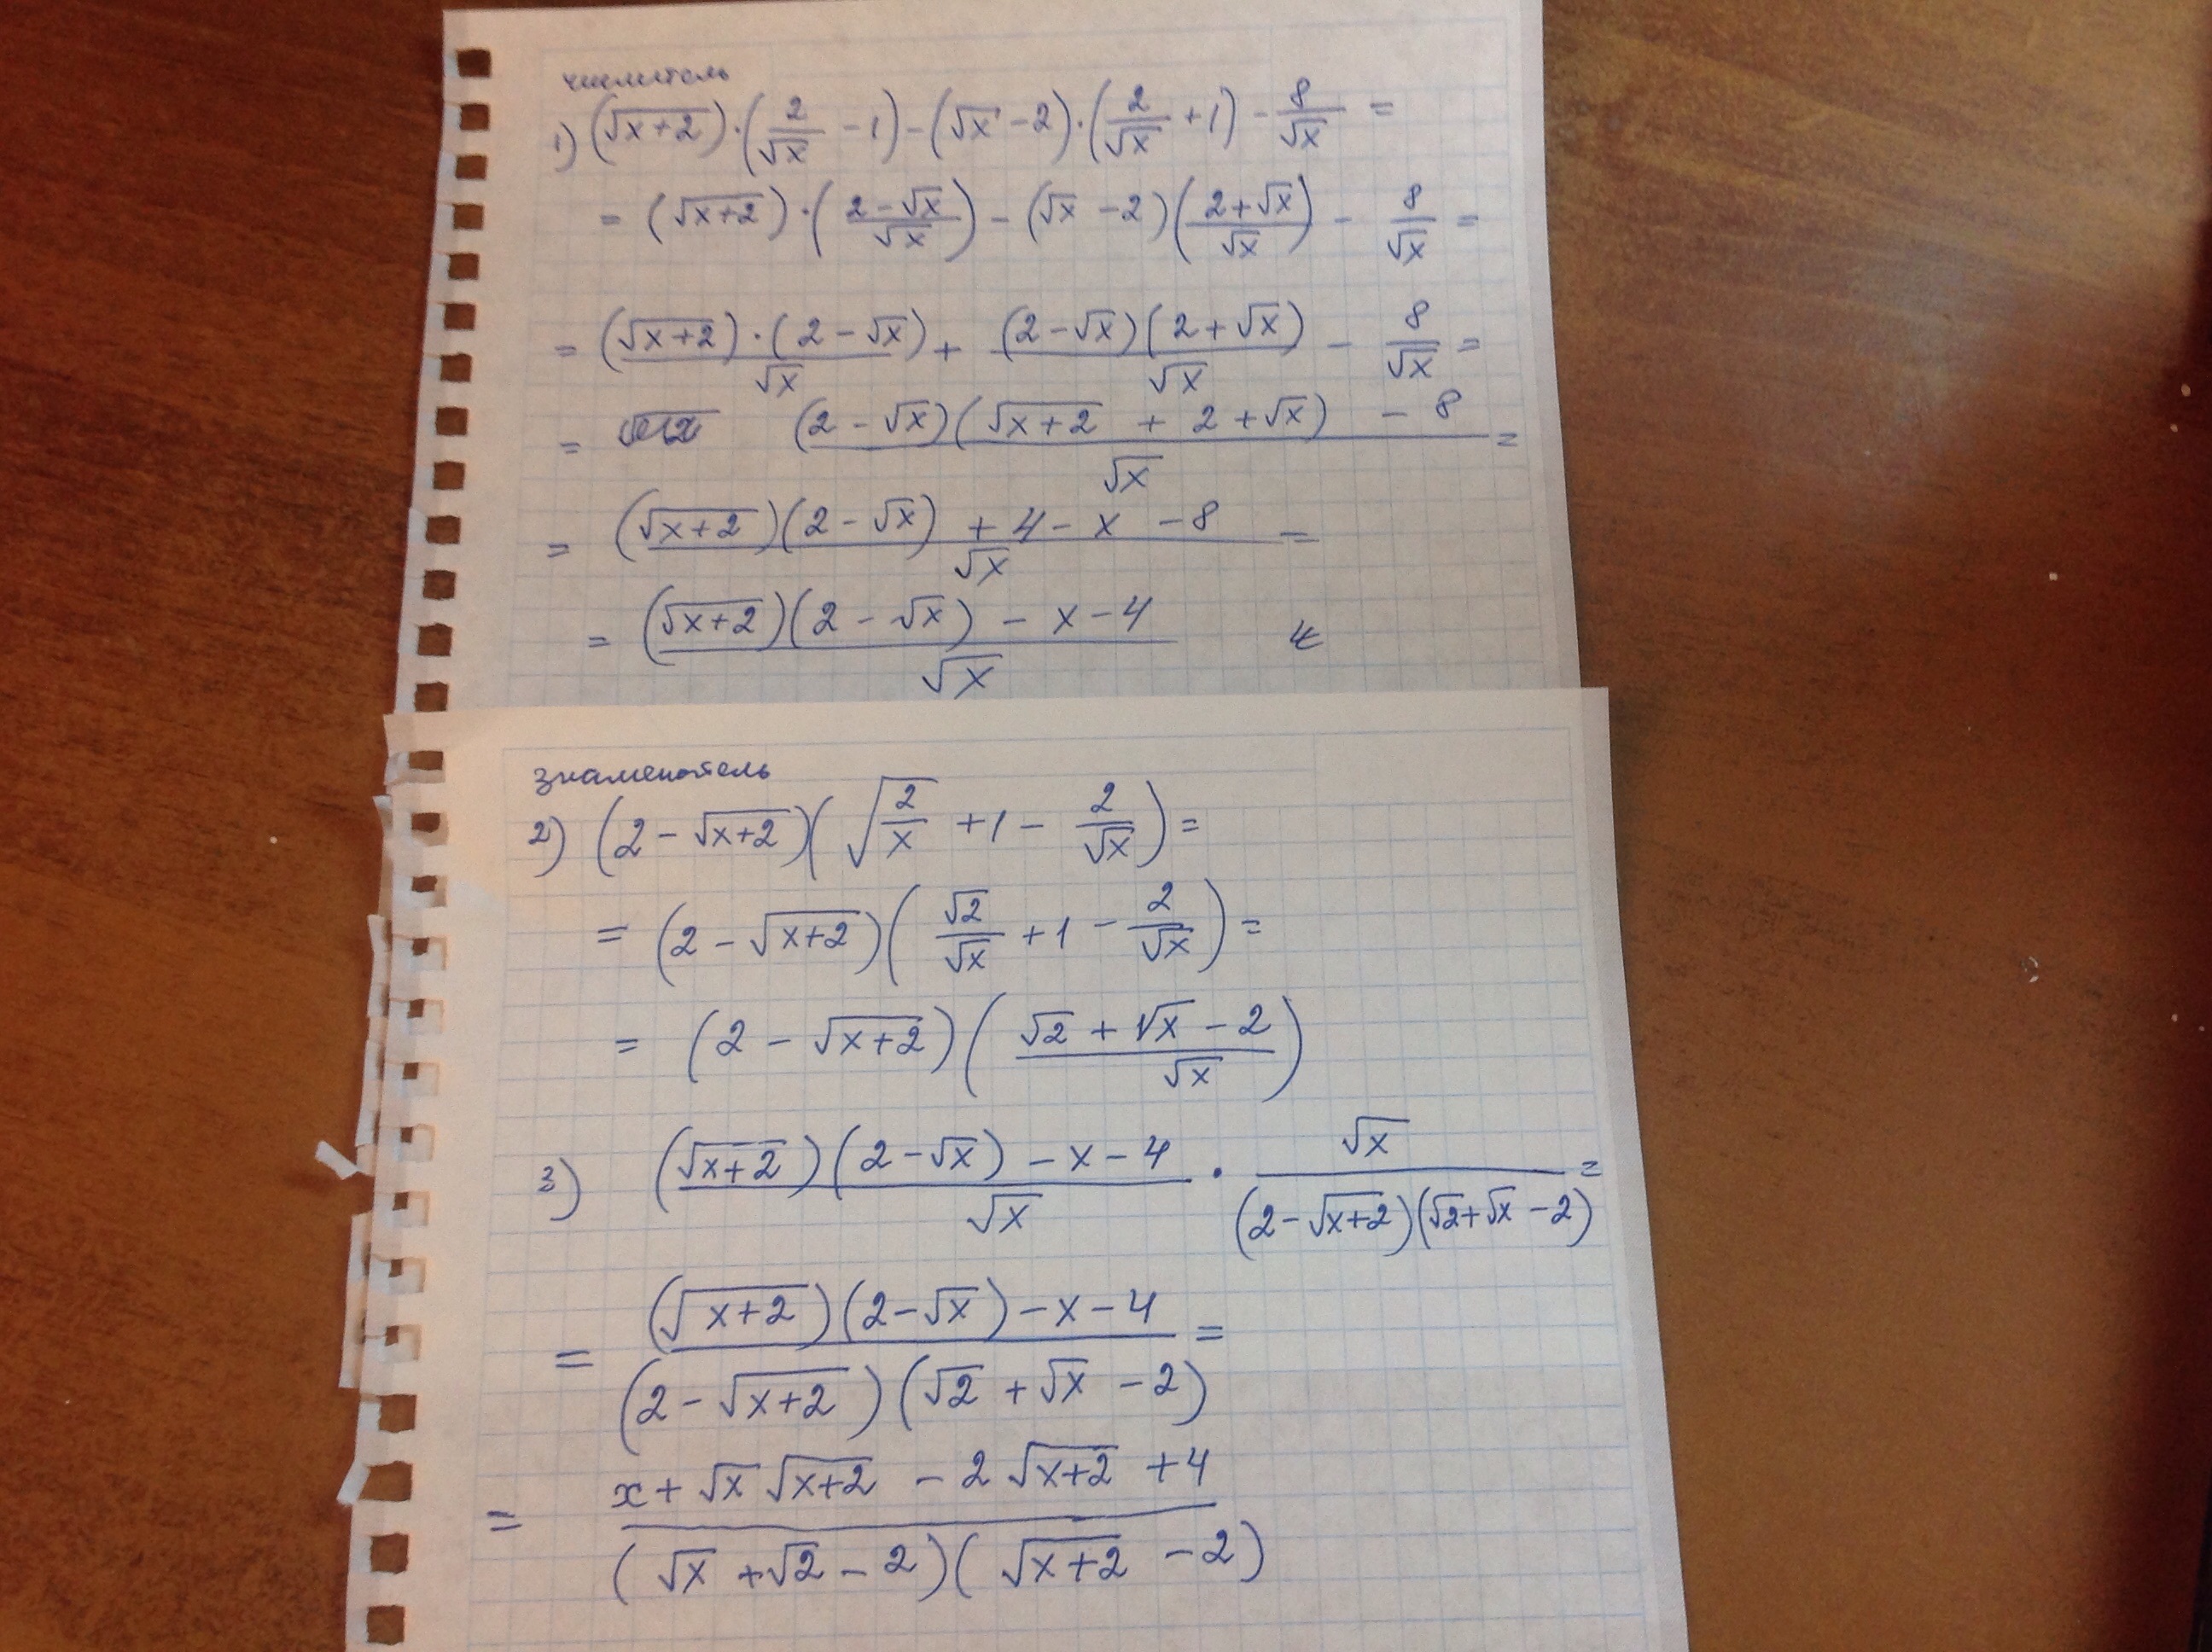 числитель
1) (√(x+2))·(2/√x − 1) − (√x − 2)·(2/√x + 1) − 8/√x =
= (√(x+2))·((2−√x)/√x) − (√x − 2)((2+√x)/√x) − 8/√x =
= (√(x+2))·(2−√x)/√x + (2−√x)(2+√x)/√x − 8/√x =
= ((2−√x)(√(x+2) + 2 + √x) − 8)/√x =
= ((√(x+2))(2−√x) + 4 − x − 8)/√x =
= ((√(x+2))(2−√x) − x − 4)/√x
знаменатель
2) (2−√(x+2))(√(2/x) + 1 − 2/√x) =
= (2−√(x+2))(√2/√x + 1 − 2/√x) =
= (2−√(x+2))((√2+√x−2)/√x)
3) ((√(x+2))(2−√x) − x − 4)/√x · √x/((2−√(x+2))(√2+√x−2)) =
= ((√(x+2))(2−√x) − x − 4)/((2−√(x+2))(√2+√x−2)) =
= (x + √x √(x+2) − 2√(x+2) + 4)/((√x+√2−2)(√(x+2)−2))